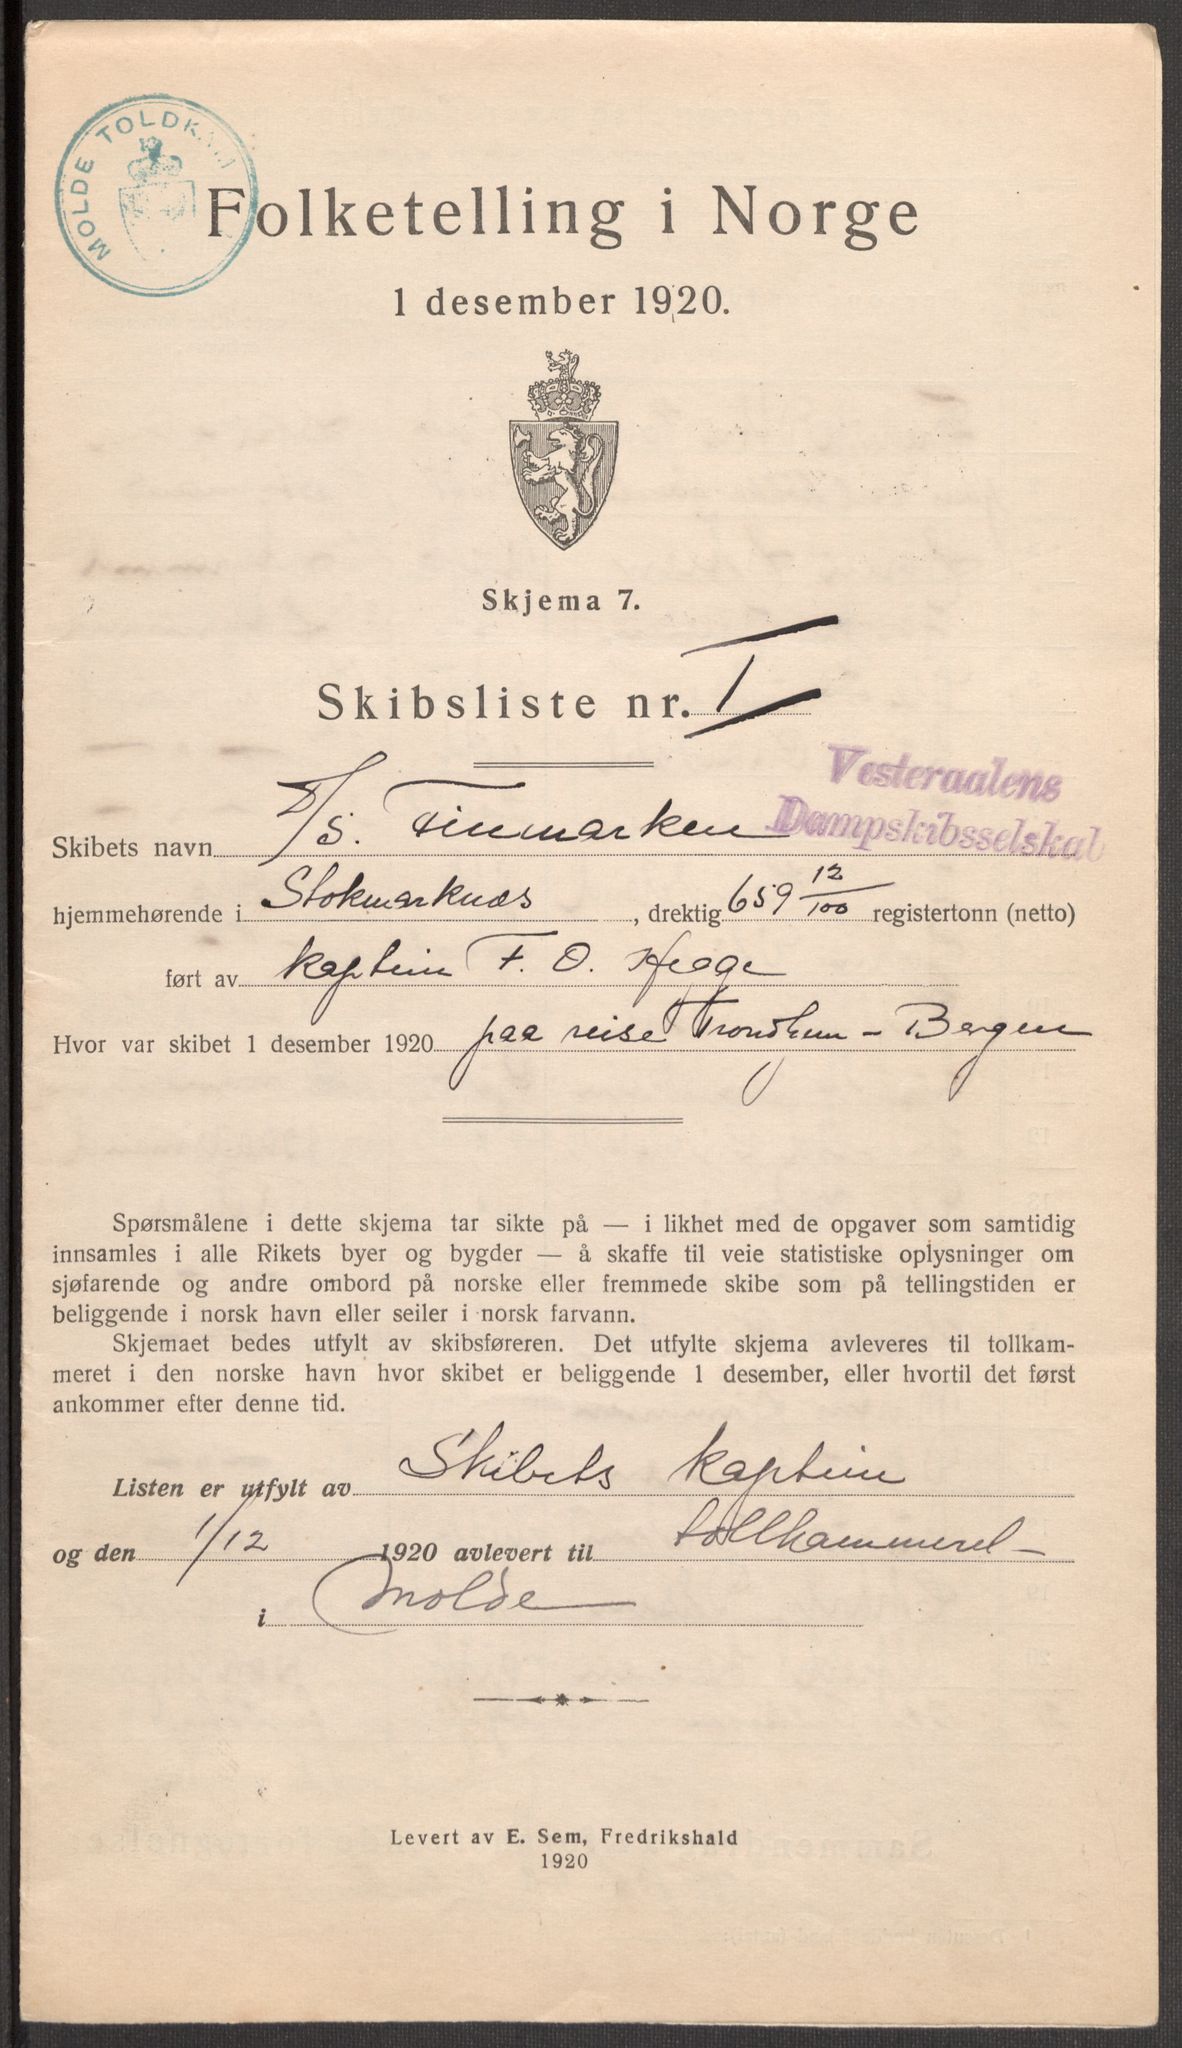 MOLDE TOLDKAM
Folketelling i Norge
1 desember 1920.
Skjema 7.
Skibsliste nr. I
Vesteraalens
Dampskibsselskab
Skibets navn D/S. Finmarken
hjemmehørende i Stokmarknæs, drektig 659 12/100 registertonn (netto)
ført av kaptein F. O. Hegge
Hvor var skibet 1 desember 1920 paa reise Trondhjem - Bergen
Spørsmålene i dette skjema tar sikte på — i likhet med de opgaver som samtidig
innsamles i alle Rikets byer og bygder — å skaffe til veie statistiske oplysninger om
sjøfarende og andre ombord på norske eller fremmede skibe som på tellingstiden er
beliggende i norsk havn eller seiler i norsk farvann.
Skjemaet bedes utfylt av skibsføreren. Det utfylte skjema avleveres til tollkam-
meret i den norske havn hvor skibet er beliggende 1 desember, eller hvortil det først
ankommer efter denne tid.
Listen er utfylt av Skibets kaptein
og den 1/12 1920 avlevert til tollkammeret
i Molde
Levert av E. Sem, Fredrikshald
1920